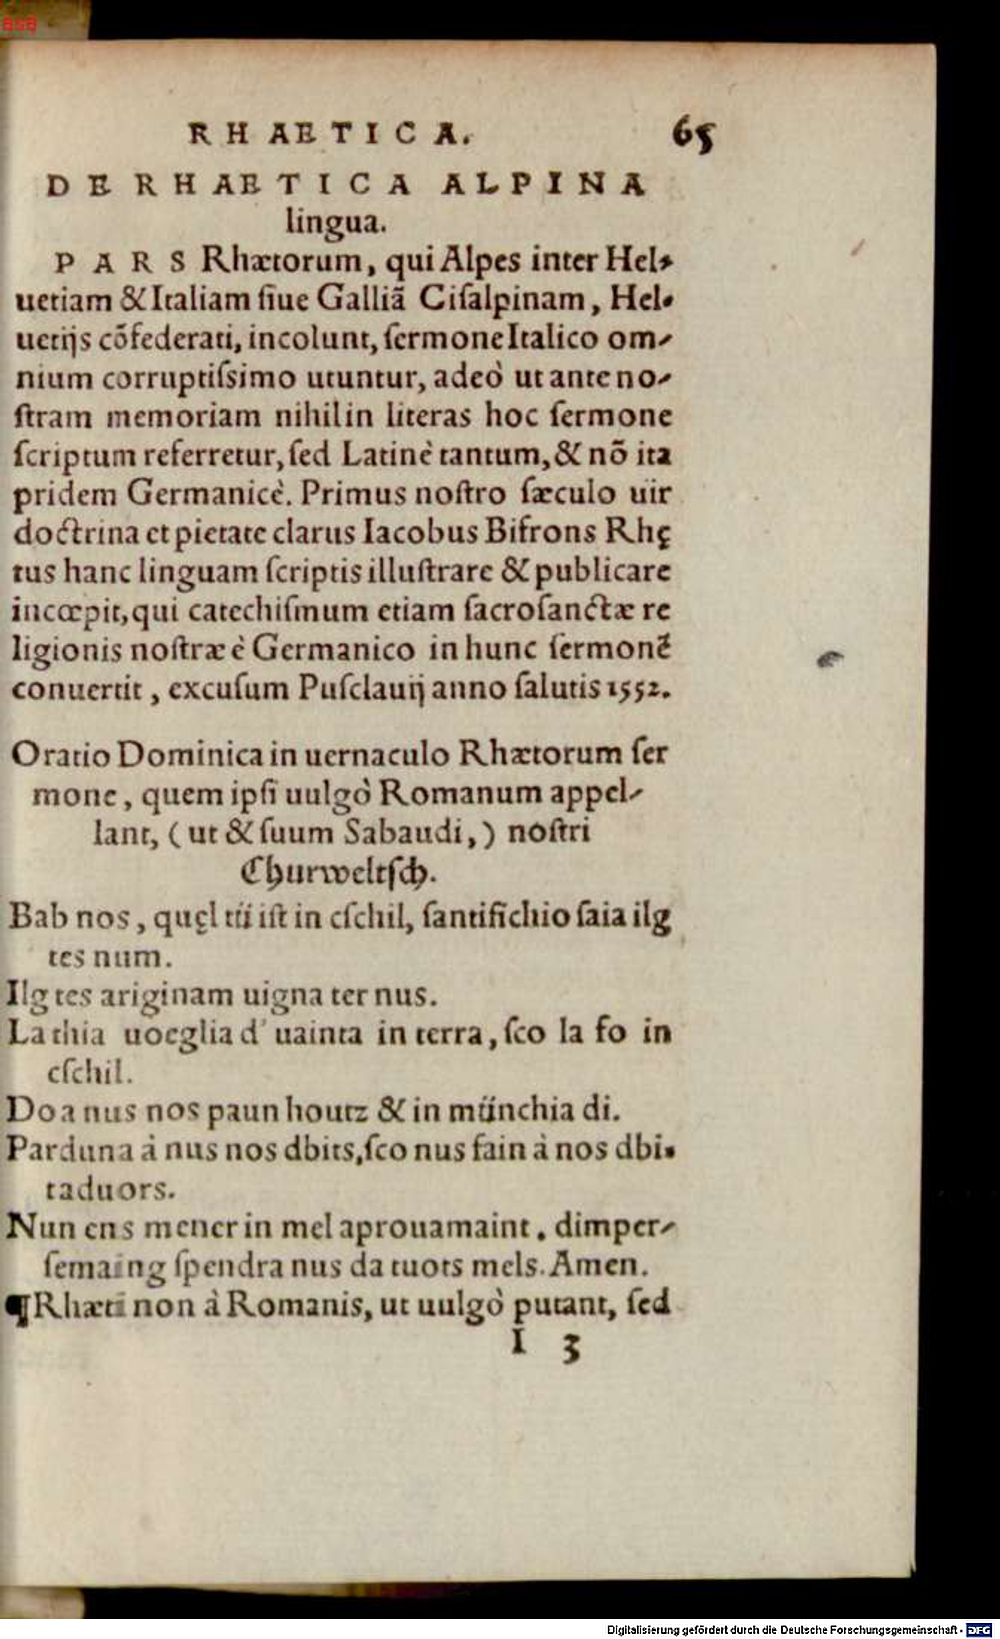 BSB
RHAETICA. 65
DE RHAETICA ALPINA
lingua.
PARS Rhætorum, qui Alpes inter Hel-
uetiam & Italiam ſiue Galliã Ciſalpinam, Hel-
uetijs cõfederati, incolunt, ſermone Italico om-
nium corruptiſsimo utuntur, adeò ut ante no-
ſtram memoriam nihil in literas hoc ſermone
ſcriptum referretur, ſed Latinè tantum, & nõ ita
pridem Germanicè. Primus noſtro ſæculo uir
doctrina et pietate clarus Iacobus Bifrons Rhę
tus hanc linguam ſcriptis illuſtrare & publicare
incœpit, qui catechiſmum etiam ſacroſanctæ re
ligionis noſtræ è Germanico in hunc ſermonẽ
conuertit, excuſum Puſclauij anno ſalutis 1552.
Oratio Dominica in uernaculo Rhætorum ſer
mone, quem ipſi uulgò Romanum appel-
lant, (ut & ſuum Sabaudi,) noſtri
Churweltſch.
Bab nos, quęl tü iſt in eſchil, ſantifichio ſaia ilg
tes num.
Ilg tes ariginam uigna ter nus.
La thia uoeglia d' uainta in terra, ſco la fo in
eſchil.
Do a nus nos paun houtz & in münchia di.
Parduna à nus nos dbits, ſco nus fain à nos dbi-
taduors.
Nun ens mener in mel aprouamaint. dimper-
ſemaing ſpendra nus da tuots mels. Amen.
¶ Rhæti non à Romanis, ut uulgò putant, ſed
I 3
Digitalisierung gefördert durch die Deutsche Forschungsgemeinschaft - DFG